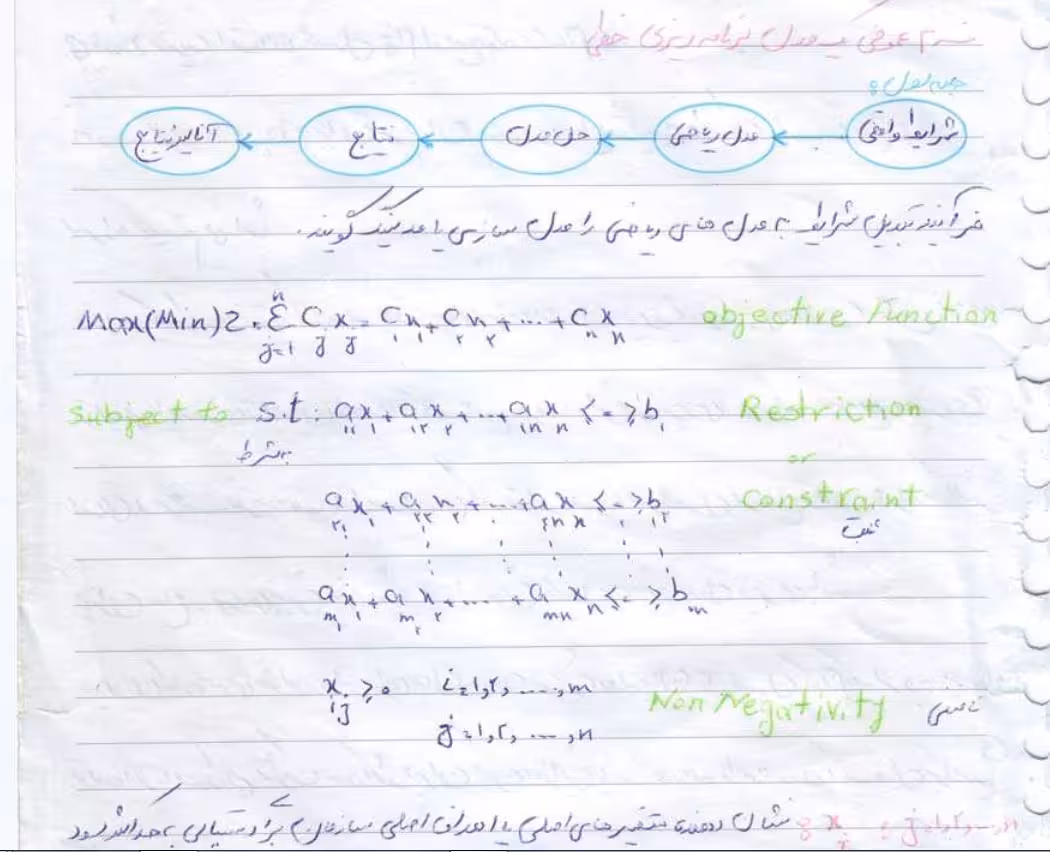 فرم عمومی یک مدل برنامه ریزی خطی
جلسه اول :
شرایط واقعی ← مدل ریاضی ← حل مدل ← نتایج ← آنالیز نتایج
فرآیند تبدیل شرایط به مدل های ریاضی را مدل سازی یا مدلینگ گویند.
Max(Min)Z = Σ_{j=1}^{n} C_j x_j = C_۱x_۱ + C_۲x_۲ + ... + C_n x_n objective Function
Subject to S.t: a_۱۱x_۱ + a_۱۲x_۲ + ... + a_۱n x_n ≤ = ≥ b_۱ Restriction
بشرط or
a_۲۱x_۱ + a_۲۲x_۲ + ... + a_۲n x_n ≤ = ≥ b_۲ Constraint
a_m۱x_۱ + a_m۲x_۲ + ... + a_mn x_n ≤ = ≥ b_m
x_ij ≥ ۰ i=۱,۲, ...., m
Non Negativity نامنفی
j=۱,۲, ..., n
j=۱,۲,...,n : نشان دهنده متغیرهای اصلی یا اهداف اصلی سازمان برای دستیابی به حداکثر سود